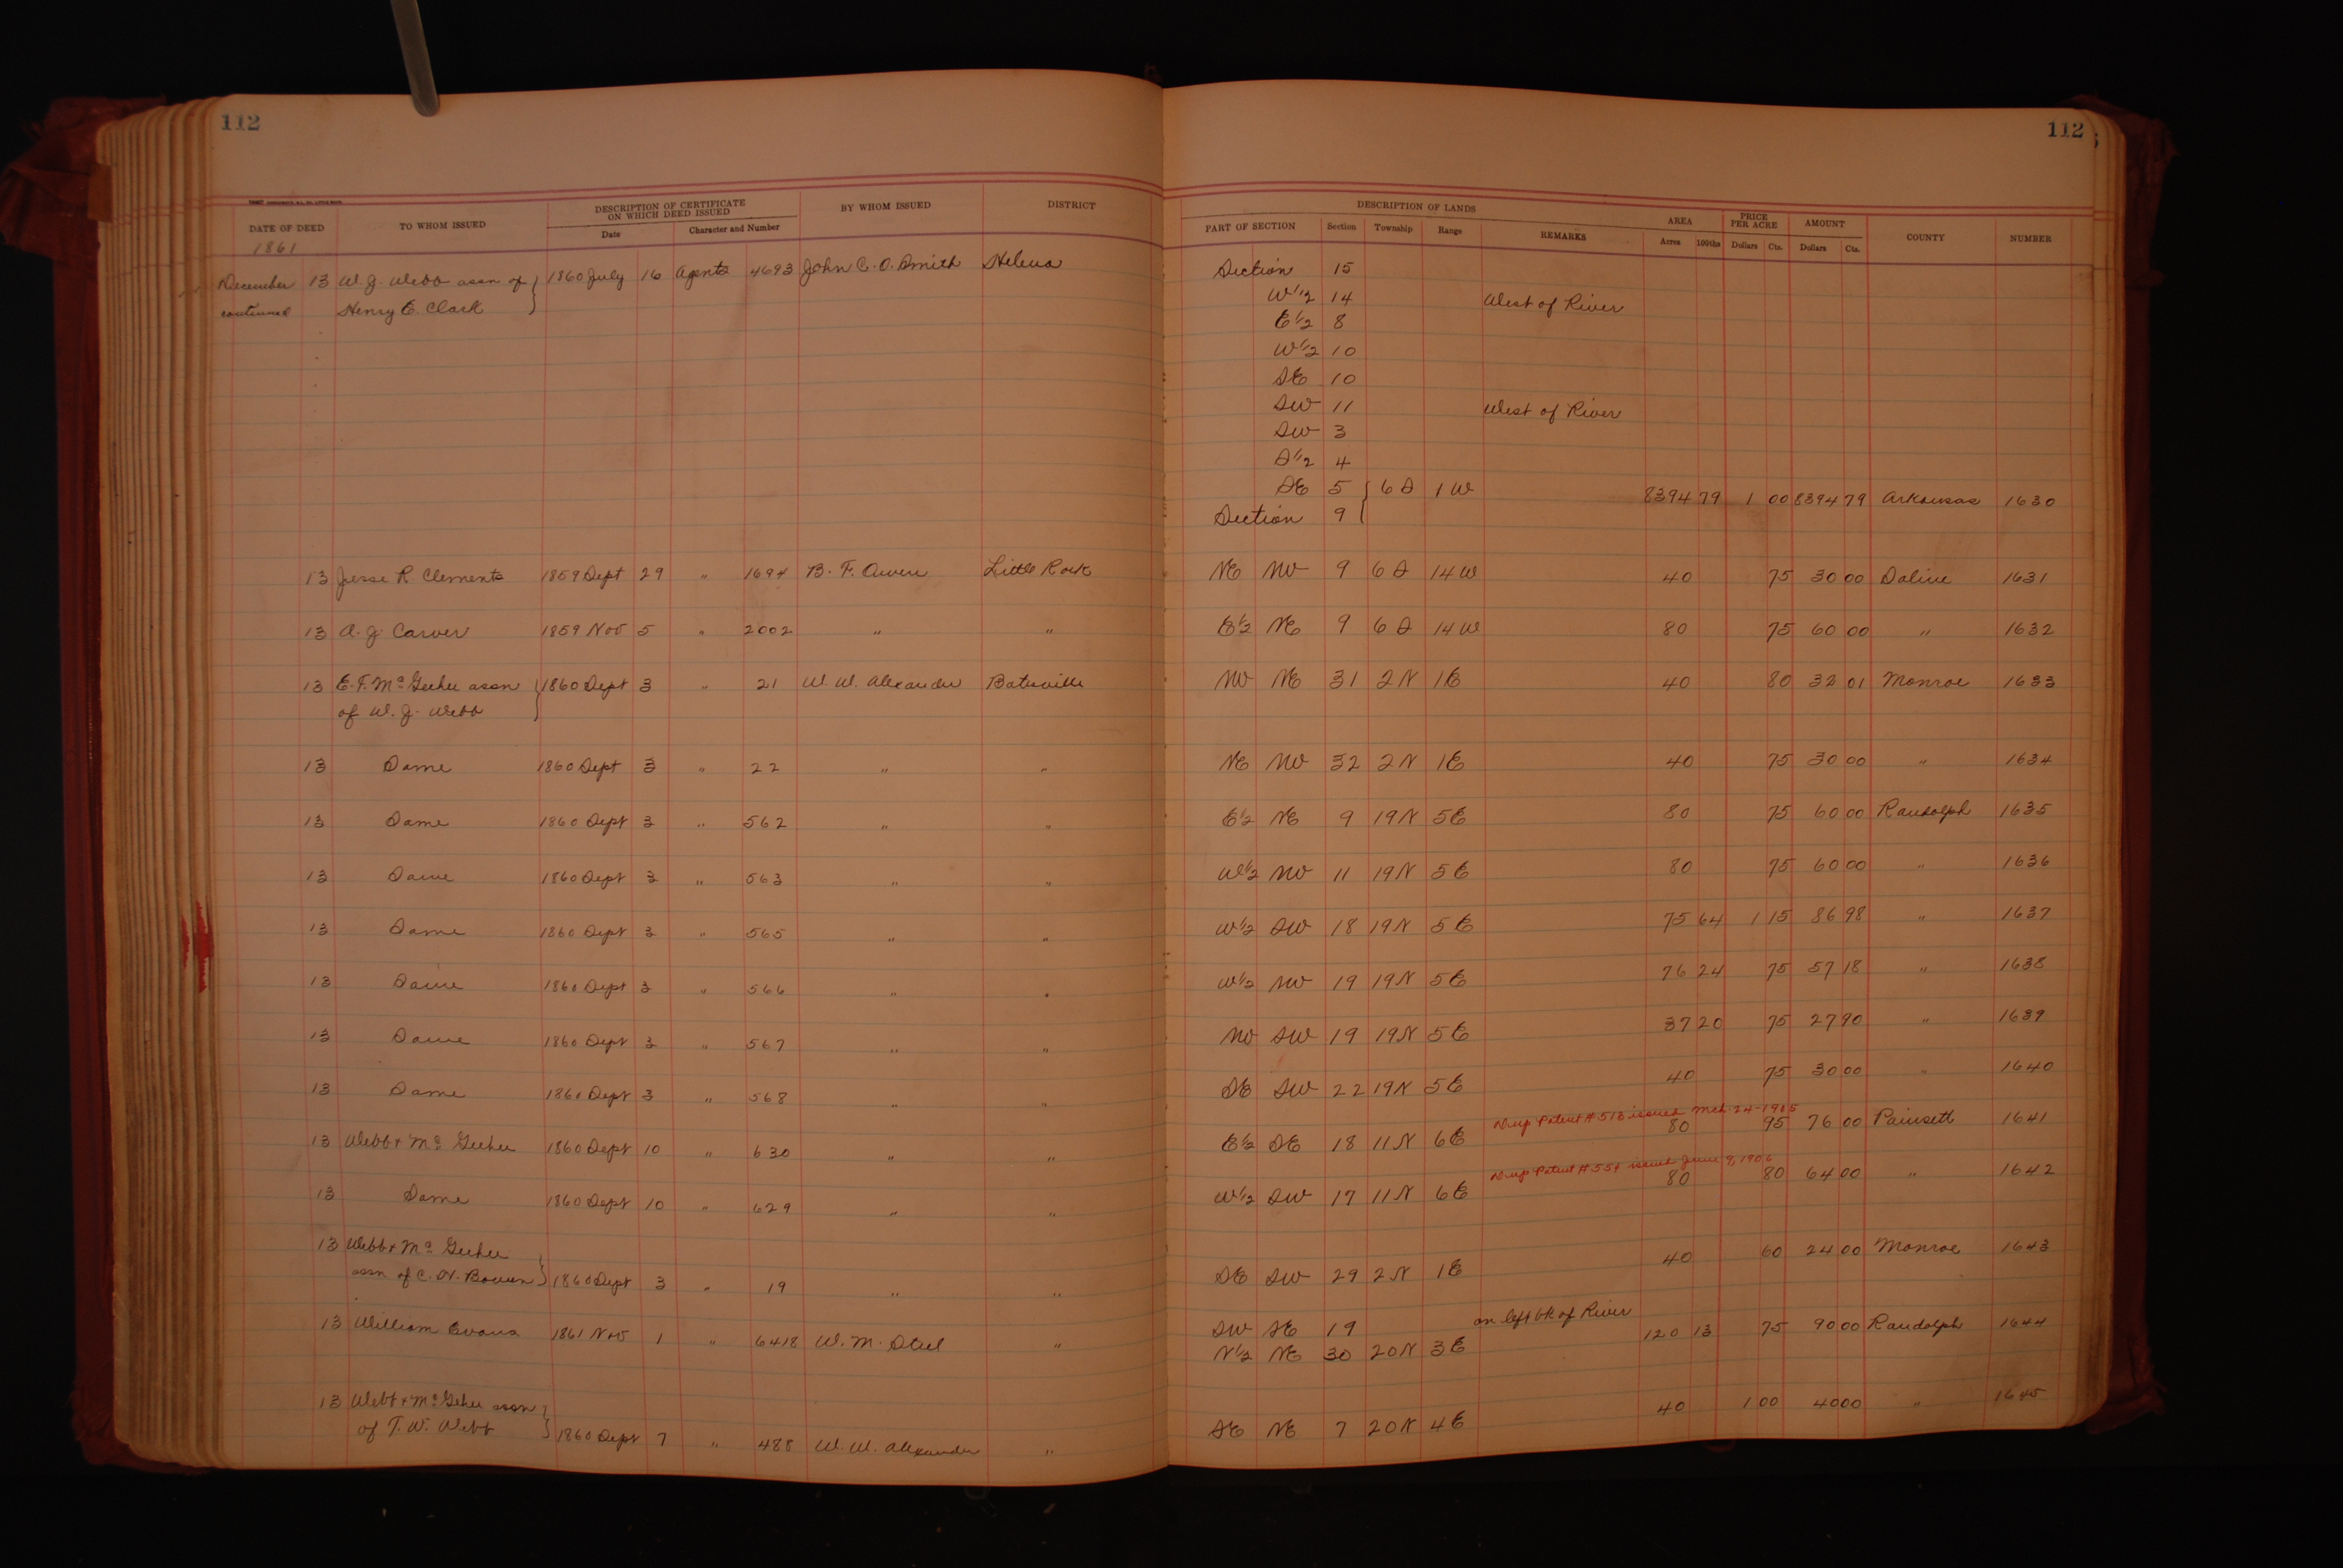 112
112
DATE OF DEED TO WHOM ISSUED DESCRIPTION OF CERTIFICATE ON WHICH DEED ISSUED BY WHOM ISSUED DISTRICT DESCRIPTION OF LANDS AREA PRICE PER ACRE AMOUNT COUNTY NUMBER
Date Character and Number PART OF SECTION Section Township Range REMARKS Acres 100ths Dollars Cts. Dollars Cts.
1861
December 13 W. J. Webb assn of 1860 July 16 Agents 4693 John C. O. Smith Helena Section 15
continued Henry E. Clark W 1/2 14 West of River
E 1/2 8
W 1/2 10
SE 10
SW 11 West of River
SW 3
S 1/2 4
SE 5 6 S 1 W 8394 79 1 00 8394 79 Arkansas 1630
Section 9
13 Jesse R. Clements 1859 Sept 29 " 1694 B. F. Owen Little Rock NE NW 9 6 S 14 W 40 75 30 00 Saline 1631
13 A. J. Carver 1859 Nov 5 " 2002 " " E 1/2 NE 9 6 S 14 W 80 75 60 00 " 1632
13 E. F. McGehee assn 1860 Sept 3 " 21 W. W. Alexander Batesville NW NE 31 2 N 1 E 40 80 32 01 Monroe 1633
of W. J. Webb
13 Same 1860 Sept 3 " 22 " " NE NW 32 2 N 1 E 40 75 30 00 " 1634
13 Same 1860 Sept 3 " 562 " " E 1/2 NE 9 19 N 5 E 80 75 60 00 Randolph 1635
13 Same 1860 Sept 3 " 563 " " W 1/2 NW 11 19 N 5 E 80 75 60 00 " 1636
13 Same 1860 Sept 3 " 565 " " W 1/2 SW 18 19 N 5 E 75 64 1 15 86 98 " 1637
13 Same 1860 Sept 3 " 566 " " W 1/2 NW 19 19 N 5 E 76 24 75 57 18 " 1638
13 Same 1860 Sept 3 " 567 " " NW SW 19 19 N 5 E 37 20 75 27 90 " 1639
13 Same 1860 Sept 3 " 568 " " SE SW 22 19 N 5 E 40 75 30 00 " 1640
Dup Patent # 513 issued Mch. 24-1905
13 Webb & McGehee 1860 Sept 10 " 630 " " E 1/2 SE 18 11 N 6 E 80 95 76 00 Poinsett 1641
Dup Patent # 554 issued June 9, 1906
13 Same 1860 Sept 10 " 629 " " W 1/2 SW 17 11 N 6 E 80 80 64 00 " 1642
13 Webb & McGehee
assn of C. N. Bowen 1860 Sept 3 " 19 " " SE SW 29 2 N 1 E 40 60 24 00 Monroe 1643
13 William Evans 1861 Nov 1 " 6418 W. M. Steel " SW SE 19 on left bk of River
N 1/2 NE 30 20 N 3 E 120 13 75 90 00 Randolph 1644
13 Webb & McGehee assn
of T. W. Webb 1860 Sept 7 " 488 W. W. Alexander " SE NE 7 20 N 4 E 40 1 00 40 00 " 1645